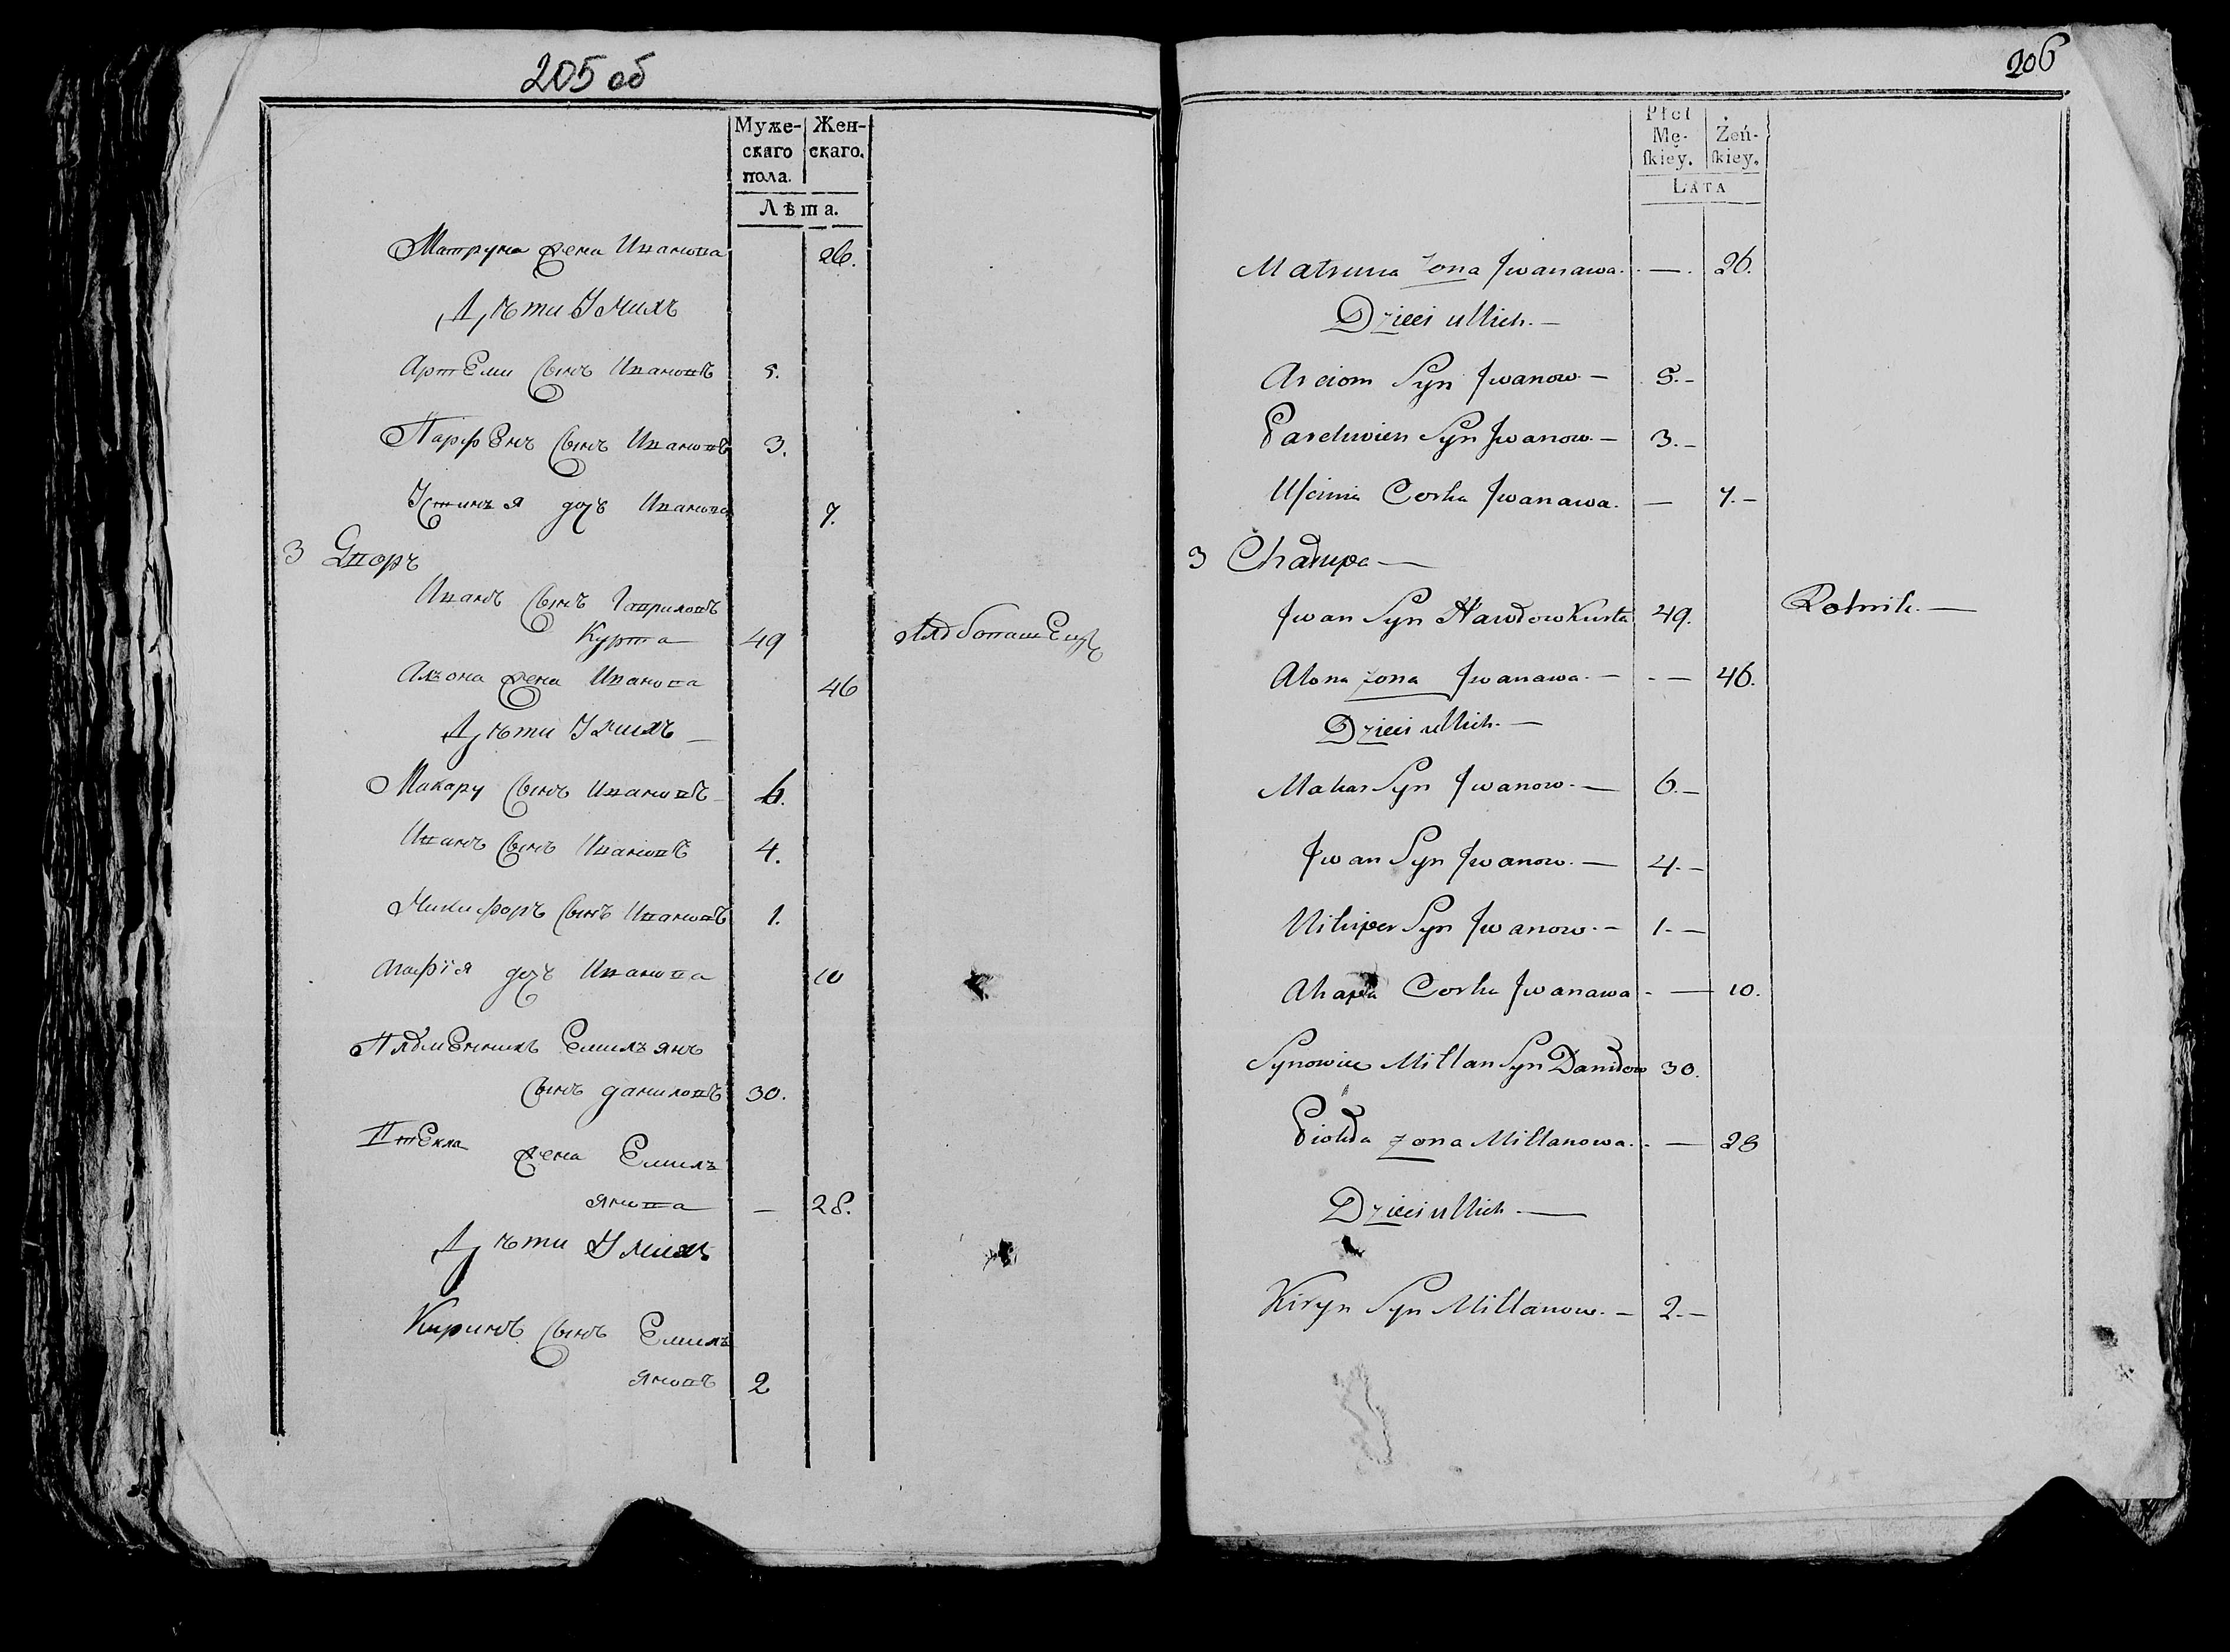 205 об
Муже- Жен-
скаго скаго.
пола.
Лѣта.
Матруна жена Иванова 26.
Дѣти У нихъ
Артеми сынъ Ивановъ 5.
Парфенъ сынъ Ивановъ 3.
Устинья дочь Иванова 7.
3 Дворъ
Иванъ сынъ Гавриловъ
Курта 49
Алъона жена Иванова 46
Дѣти У нихъ —
Макару сынъ Ивановъ 6.
Иванъ сынъ Ивановъ 4.
Никифоръ сынъ Ивановъ 1.
Агафія дочь Иванова 10
Пляменникъ Емилъянъ
сынъ даниловъ 30.
Втекла жена Емилъ
янова — 28.
Дѣти У нихъ
Киринъ сынъ Емилъ
яновъ 2
206
Płci
Mę- Żeń-
ſkiey. ſkiey.
LATA
Matruna żona Jwanawa. — 26.
Dzieci u Nich. —
Arciom Syn Jwanow — 5. —
Parchwien Syn Jwanow. — 3. —
Uſcinia Corka Jwanawa. — 7. —
3 Chałupa —
Jwan Syn Hawdow Kurta 49. Rolnik. —
Alona żona Jwanawa. — — 46.
Dzieci u Nich. —
Makar Syn Jwanow. — 6. —
Jwan Syn Jwanow. — 4. —
Nikiper Syn Jwanow. — 1. —
Ahapa Corka Jwanawa — 10.
Synowiec Millan Syn Daniłow 30.
żona Millanowa. — 28
Dzieci u Nich. —
Kiryn Syn Millanow. — 2. —